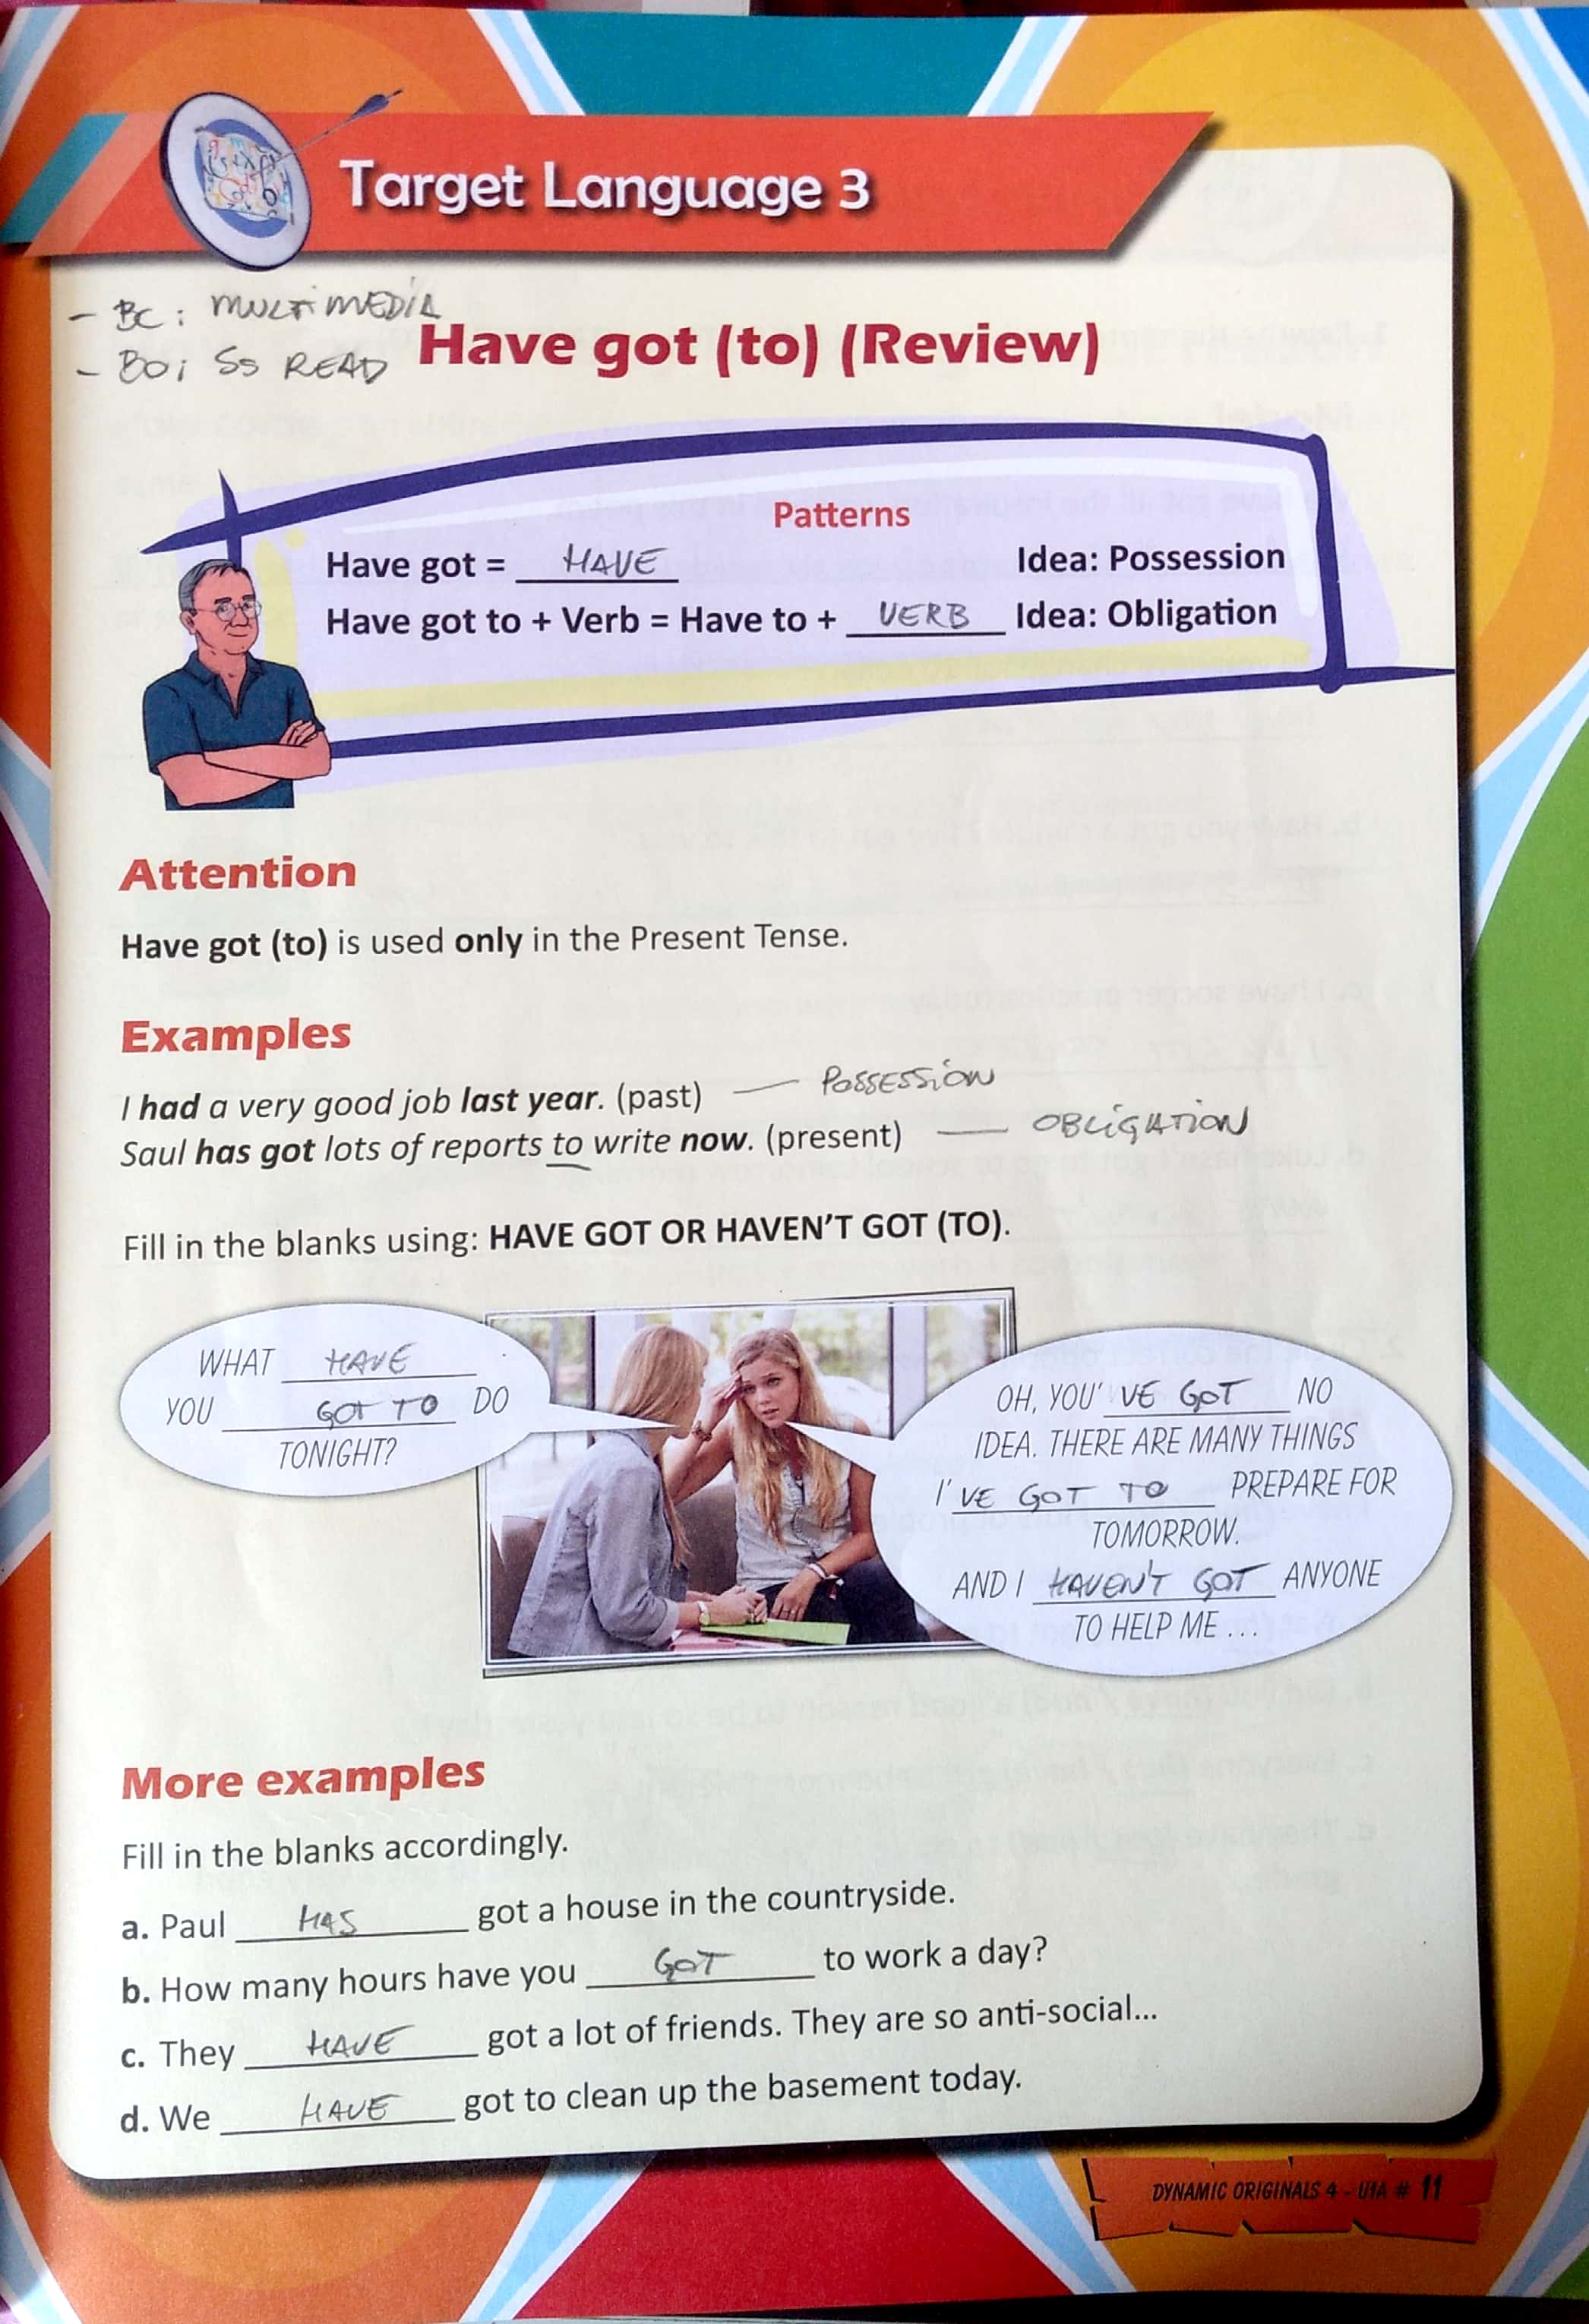 Target Language 3
- BC: MULTIMEDIA
- BO: Ss READ
Have got (to) (Review)
Patterns
Have got = HAVE Idea: Possession
Have got to + Verb = Have to + VERB Idea: Obligation
Attention
Have got (to) is used only in the Present Tense.
Examples
I had a very good job last year. (past) — POSSESSION
Saul has got lots of reports to write now. (present) — OBLIGATION
Fill in the blanks using: HAVE GOT OR HAVEN'T GOT (TO).
WHAT HAVE
YOU GOT TO DO
TONIGHT?
OH, YOU' VE GOT NO
IDEA. THERE ARE MANY THINGS
I' VE GOT TO PREPARE FOR
TOMORROW.
AND I HAVEN'T GOT ANYONE
TO HELP ME ...
More examples
Fill in the blanks accordingly.
a. Paul HAS got a house in the countryside.
b. How many hours have you GOT to work a day?
c. They HAVE got a lot of friends. They are so anti-social...
d. We HAVE got to clean up the basement today.
DYNAMIC ORIGINALS 4 - U1A # 11